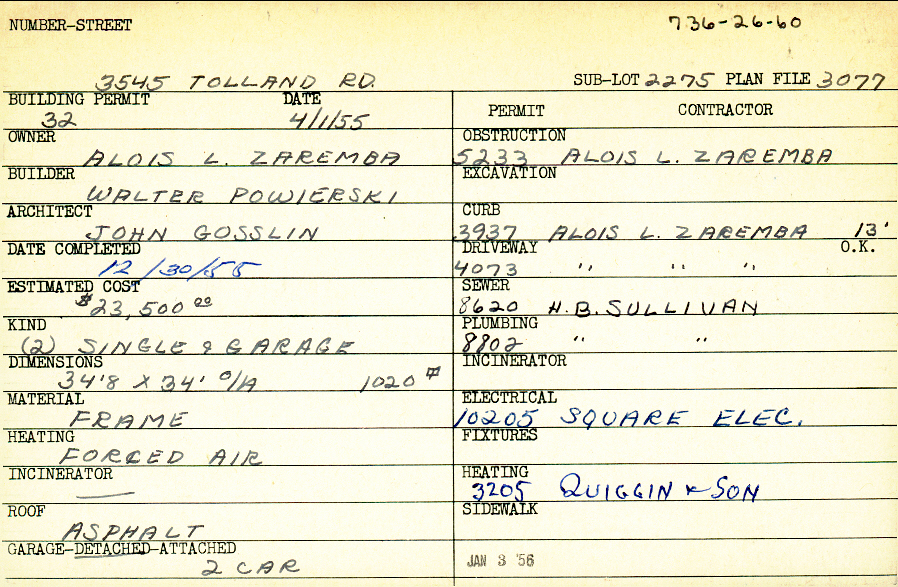 NUMBER-STREET
736-26-60
3545 TOLLAND RD. SUB-LOT 2275 PLAN FILE 3077
BUILDING PERMIT DATE
32 4/1/55
OWNER
ALOIS L. ZAREMBA
BUILDER
WALTER POWIERSKI
ARCHITECT
JOHN GOSSLIN
DATE COMPLETED
12/30/55
ESTIMATED COST
$23,500 00
KIND
(2) SINGLE & GARAGE
DIMENSIONS
34'8 X 34' O/A 1020 #
MATERIAL
FRAME
HEATING
FORCED AIR
INCINERATOR
—
ROOF
ASPHALT
GARAGE-DETACHED-ATTACHED
2 CAR
PERMIT CONTRACTOR
OBSTRUCTION
5233 ALOIS L. ZAREMBA
EXCAVATION
CURB
3937 ALOIS L. ZAREMBA 13'
DRIVEWAY O.K.
4073 " " "
SEWER
8620 H.B. SULLIVAN
PLUMBING
8802 " "
INCINERATOR
ELECTRICAL
10205 SQUARE ELEC.
FIXTURES
HEATING
3205 QUIGGIN & SON
SIDEWALK
JAN 3 '56